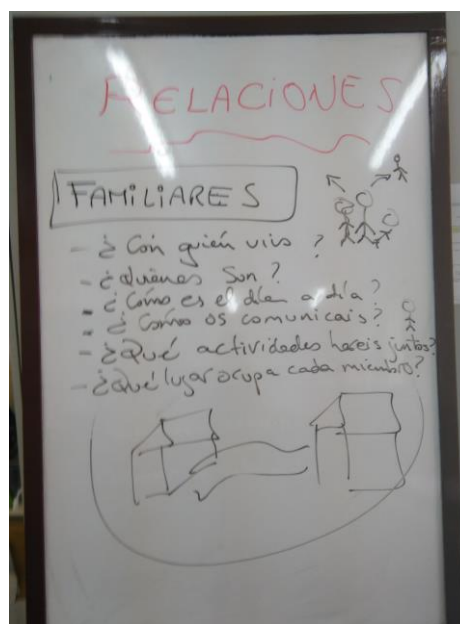 RELACIONES
FAMILIARES
- ¿Con quién vivo?
- ¿Quiénes son?
- ¿Cómo es el día a día?
- ¿Cómo os comunicais?
- ¿Qué actividades haceis juntos?
- ¿Qué lugar ocupa cada miembro?